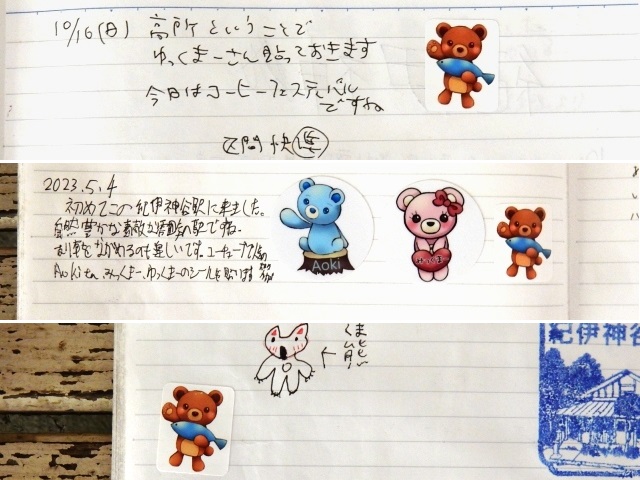 10/16(日) 高所ということで
ゆっくまーさん貼っておきます
今日はコーヒーフェスティバル
ですね
区間快速
2023.5.4
初めてこの紀伊神谷駅に来ました。
自然豊かな素敵な駅ですね。
列車をながめるのも楽しいです。ユーチューブで
Aokiさん、みっくまー、ゆっくまーのシールを貼ります
Aoki
みっくまー
くまと
熊
紀伊神谷